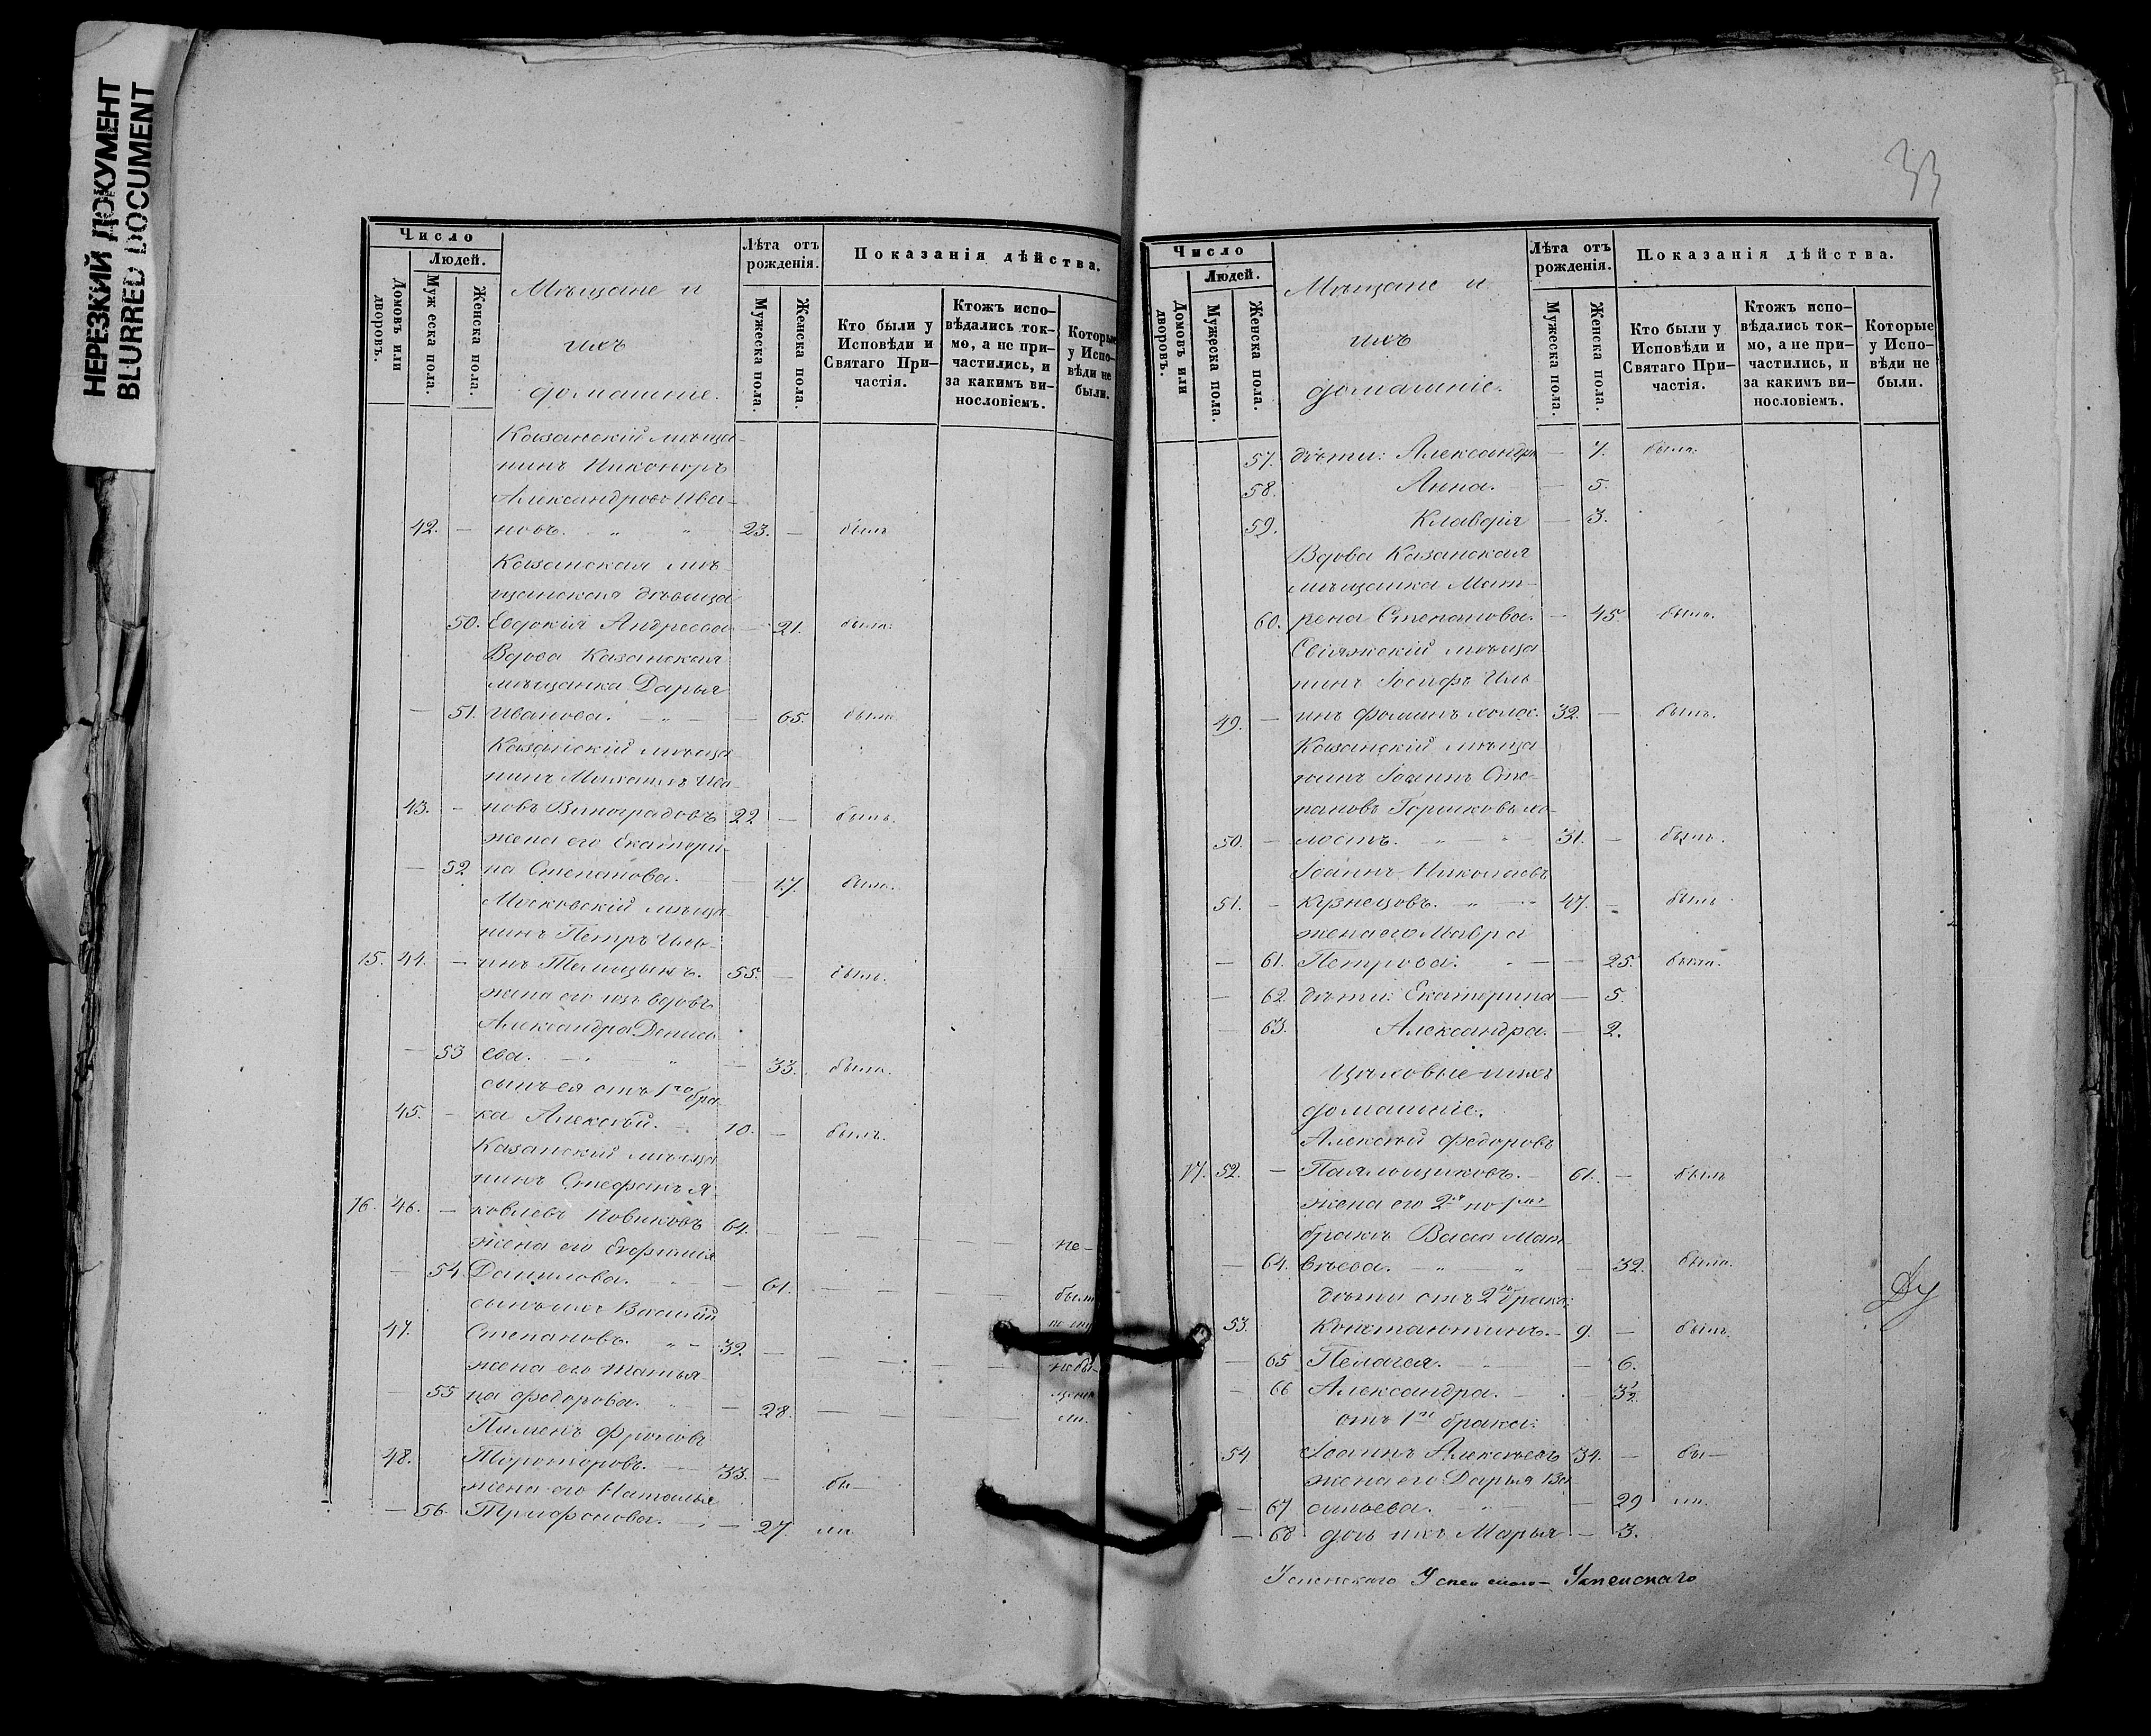 НЕРЕЗКИЙ ДОКУМЕНТ
BLURRED DOCUMENT
Число
Людей.
Домовъ или дворовъ.
Мужеска пола.
Женска пола.
Мѣщане и
ихъ
домашніе.
Лѣта отъ рожденія.
Мужеска пола.
Женска пола.
Показанія дѣйства.
Кто были у Исповѣди и Святаго При-частія.
Ктожъ испо-вѣдались ток-мо, а не при-частились, и за какимъ ви-нословіемъ.
Которые у Испо-вѣди не были.
Казанскій мѣща-
нинъ Никоноръ
Александровъ Ива-
42. — новъ. „ „ 23. — былъ
Казанская мѣ-
щанская дѣвица
50. Евдокія Андреева — 21. была.
Вдова Казанская
мѣщанка Дарья
— 51. Иванова. — „ — — 65. была.
Казанскій мѣща-
нинъ Михаилъ Ива-
43. — новъ Виноградовъ 22 — былъ.
жена его Екатери-
— 52 на Степанова. — 17. была.
Московскій мѣща-
нинъ Петръ Иль-
15. 44. — инъ Телицынъ. 55. — былъ.
жена его изъ вдовъ
Александра Денись-
— 53 ева. — „ — 33. была.
сынъ ея отъ 1го бра-
45. — ка Алексѣй. — 10. — былъ.
Казанскій мѣща
нинъ Стефанъ Я-
16. 46. — ковлевъ Новиковъ 64. — — — — — не-
жена его Евфимія
— 54. Данилова. — — 61. — — — — были
сынъ ихъ Василій
47. Степановъ. „ — 32. — — — — —
жена его Татья-
— 55 на Федорова. „ — 28. — — — —
Пименъ Фроловъ
48. — 33. — бы—
жена его Наталья
— 56. Трифонова. — — 27. ли.
33
Число
Людей.
Домовъ или дворовъ.
Мужеска пола.
Женска пола.
Мѣщане и
ихъ
домашніе.
Лѣта отъ рожденія.
Мужеска пола.
Женска пола.
Показанія дѣйства.
Кто были у Исповѣди и Святаго При-частія.
Ктожъ испо-вѣдались ток-мо, а не при-частились, и за какимъ ви-нословіемъ.
Которые у Испо-вѣди не были.
57. дѣти: Александра — 7. была.
58. Анна. — 5.
59. Клавдія — 3.
Вдова Казанская
мѣщанка Мат-
60. рена Степанова. — 45. была.
Свіяжскій мѣща
нинъ Іосифъ Иль-
49. — инъ Фоминъ холос. 32. — былъ.
Казанскій мѣща
нинъ Іоаннъ Сте-
пановъ Горшковъ хо-
50. — лостъ. — „ — 31. — былъ.
Іоаннъ Николаевъ
51. — Кузнецовъ. „ — 47. — былъ
жена его Мавра
— 61. Петрова. — — 25. была.
— 62. дѣти: Екатерина — 5.
— 63. Александра. — 2.
Цѣховые и ихъ
домашніе.
Алексѣй Федоровъ
17. 52. — Паяльщиковъ. — 61. — былъ
жена его 2я по 1мъ
бракѣ Васса Мат-
— 64. вѣева. — „ „ — 32. была.
дѣти отъ 2го брака:
53. Константинъ. — 9. — былъ.
— 65 Пелагея. — — 6.
— 66 Александра. — — 3½
отъ 1го брака:
54 Іоаннъ Алексѣевъ 34. — бы—
жена его Дарья Ва
— 67 сильева. — „ — — 29 ли.
— 68 дочь ихъ Марья — 3.
Успенскаго Успенскаго Успенскаго